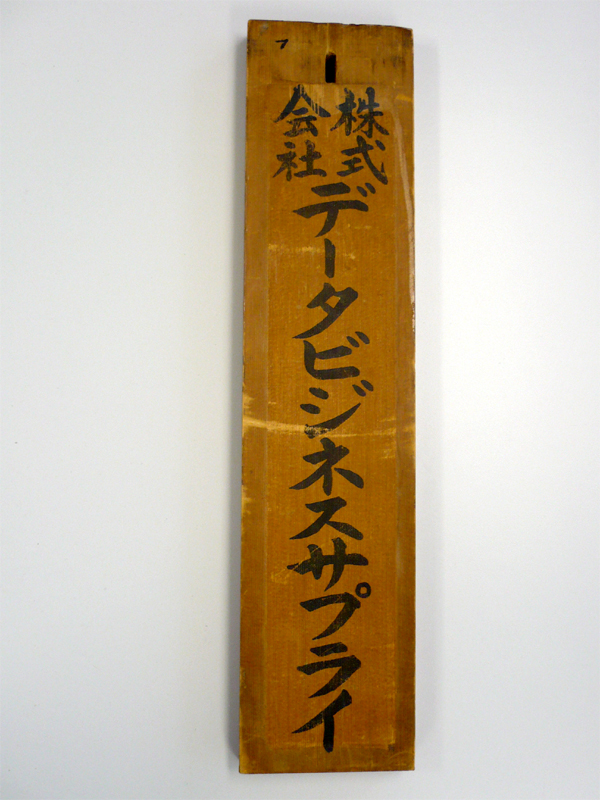 フ
株式
会社
データビジネスサプライ